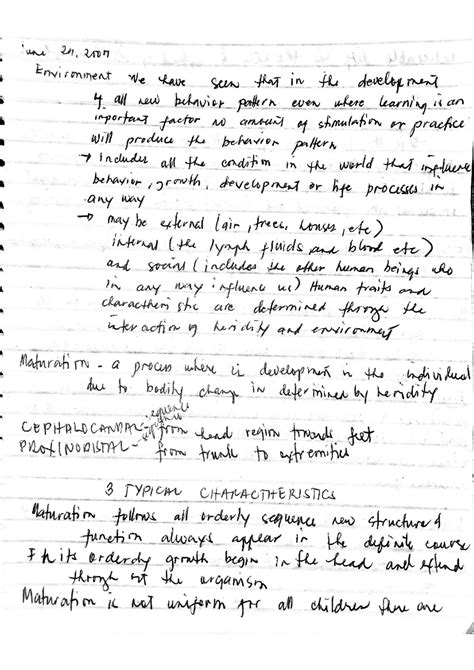 june 27, 2007
Environment We have seen that in the development
of all new behavior pattern even where learning is an
important factor no amount of stimulation or practice
will produce the behavior pattern
→ includes all the condition in the world that influence
behavior, growth, development or life processes in
any way
→ may be external (air, trees, houses, etc)
internal (the lymph fluids and blood etc)
and social (includes the other human beings who
in any way influence us) Human traits and
charactheristic are determined through the
interaction of heridity and environment
Maturation - a process where in development in the individual
due to bodily change in determined by heridity
sequence
CEPHALOCANDAL - from head region towards feet
PROXINODISTAL - from trunk to extremities
3 TYPICAL CHARACTHERISTICS
Maturation follows all orderly sequence new structure &
function always appear in the definite course
In its orderly growth begin in the head and extend
through out the organism
Maturation is not uniform for all children there are